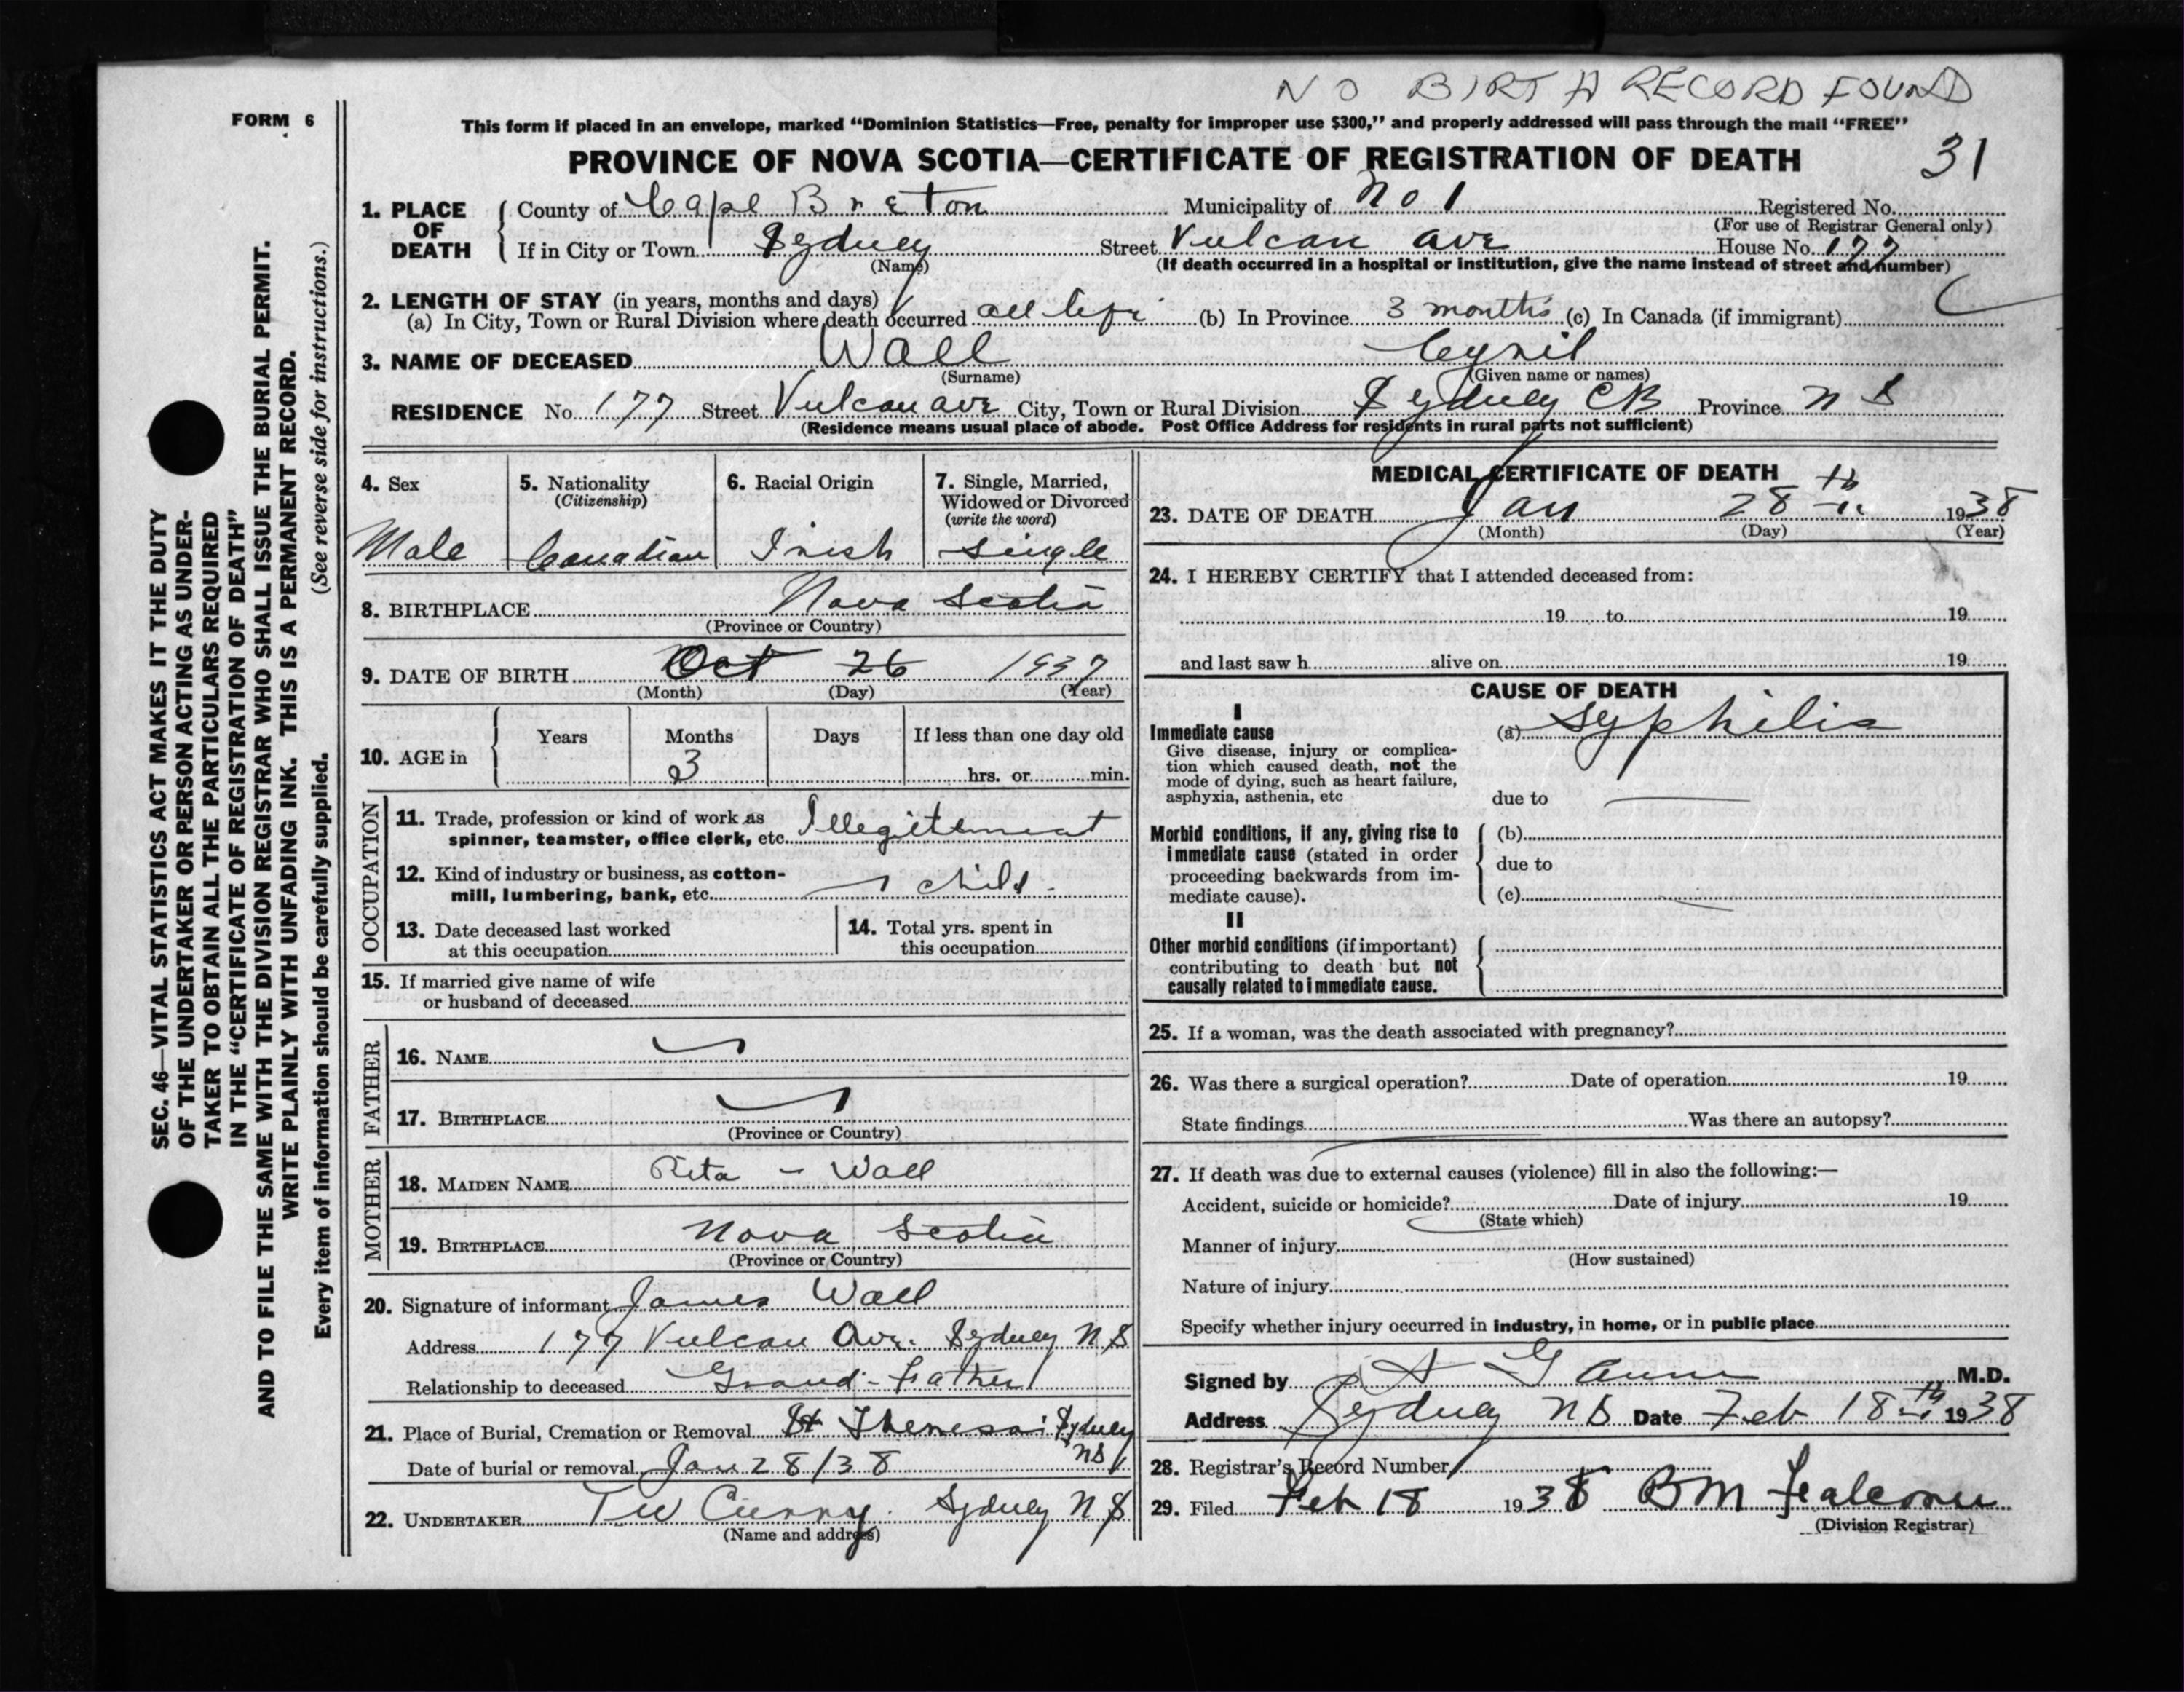 NO BIRTH RECORD FOUND
FORM 6
This form if placed in an envelope, marked “Dominion Statistics—Free, penalty for improper use $300,” and properly addressed will pass through the mail “FREE”
PROVINCE OF NOVA SCOTIA—CERTIFICATE OF REGISTRATION OF DEATH 31
1. PLACE OF DEATH
County of Cape Breton Municipality of No 1 Registered No.
(For use of Registrar General only)
If in City or Town Sydney Street Vulcan Ave House No. 177
(Name) (If death occurred in a hospital or institution, give the name instead of street and number)
2. LENGTH OF STAY (in years, months and days)
(a) In City, Town or Rural Division where death occurred all life (b) In Province 3 months (c) In Canada (if immigrant)
3. NAME OF DECEASED Wall Cyril
(Surname) (Given name or names)
RESIDENCE No. 177 Street Vulcan ave City, Town or Rural Division Sydney CB Province N S
(Residence means usual place of abode. Post Office Address for residents in rural parts not sufficient)
4. Sex
Male
5. Nationality
(Citizenship)
Canadian
6. Racial Origin
Irish
7. Single, Married,
Widowed or Divorced
(write the word)
single
8. BIRTHPLACE Nova Scotia
(Province or Country)
9. DATE OF BIRTH Oct 26 1937
(Month) (Day) (Year)
10. AGE in
Years Months Days If less than one day old
3 hrs. or min.
OCCUPATION
11. Trade, profession or kind of work as
spinner, teamster, office clerk, etc. Illegitement
12. Kind of industry or business, as cotton-
mill, lumbering, bank, etc. child
13. Date deceased last worked
at this occupation
14. Total yrs. spent in
this occupation
15. If married give name of wife
or husband of deceased
FATHER
16. NAME
17. BIRTHPLACE
(Province or Country)
MOTHER
18. MAIDEN NAME Rita - Wall
19. BIRTHPLACE Nova Scotia
(Province or Country)
20. Signature of informant James Wall
Address 177 Vulcan Ave. Sydney N S
Relationship to deceased Grand-Father
21. Place of Burial, Cremation or Removal St Theresa: Sydney
NS
Date of burial or removal Jan 28/38
22. UNDERTAKER T W Curry. Sydney N S
(Name and address)
MEDICAL CERTIFICATE OF DEATH
23. DATE OF DEATH Jan 28th 1938
(Month) (Day) (Year)
24. I HEREBY CERTIFY that I attended deceased from:
19 to 19
and last saw h alive on 19
CAUSE OF DEATH
I
Immediate cause
Give disease, injury or complica-
tion which caused death, not the
mode of dying, such as heart failure,
asphyxia, asthenia, etc
(a) Syphilis
due to
Morbid conditions, if any, giving rise to
immediate cause (stated in order
proceeding backwards from im-
mediate cause).
(b)
due to
(c)
II
Other morbid conditions (if important)
contributing to death but not
causally related to immediate cause.
25. If a woman, was the death associated with pregnancy?
26. Was there a surgical operation? Date of operation 19
State findings Was there an autopsy?
27. If death was due to external causes (violence) fill in also the following:—
Accident, suicide or homicide? Date of injury 19
(State which)
Manner of injury
(How sustained)
Nature of injury
Specify whether injury occurred in industry, in home, or in public place
Signed by M.D.
Address Sydney NS Date Feb 18th 1938
28. Registrar's Record Number
29. Filed Feb 18 1938 BM Falconer
(Division Registrar)
SEC. 46—VITAL STATISTICS ACT MAKES IT THE DUTY
OF THE UNDERTAKER OR PERSON ACTING AS UNDER-
TAKER TO OBTAIN ALL THE PARTICULARS REQUIRED
IN THE “CERTIFICATE OF REGISTRATION OF DEATH”
AND TO FILE THE SAME WITH THE DIVISION REGISTRAR WHO SHALL ISSUE THE BURIAL PERMIT.
WRITE PLAINLY WITH UNFADING INK. THIS IS A PERMANENT RECORD.
Every item of information should be carefully supplied. (See reverse side for instructions.)